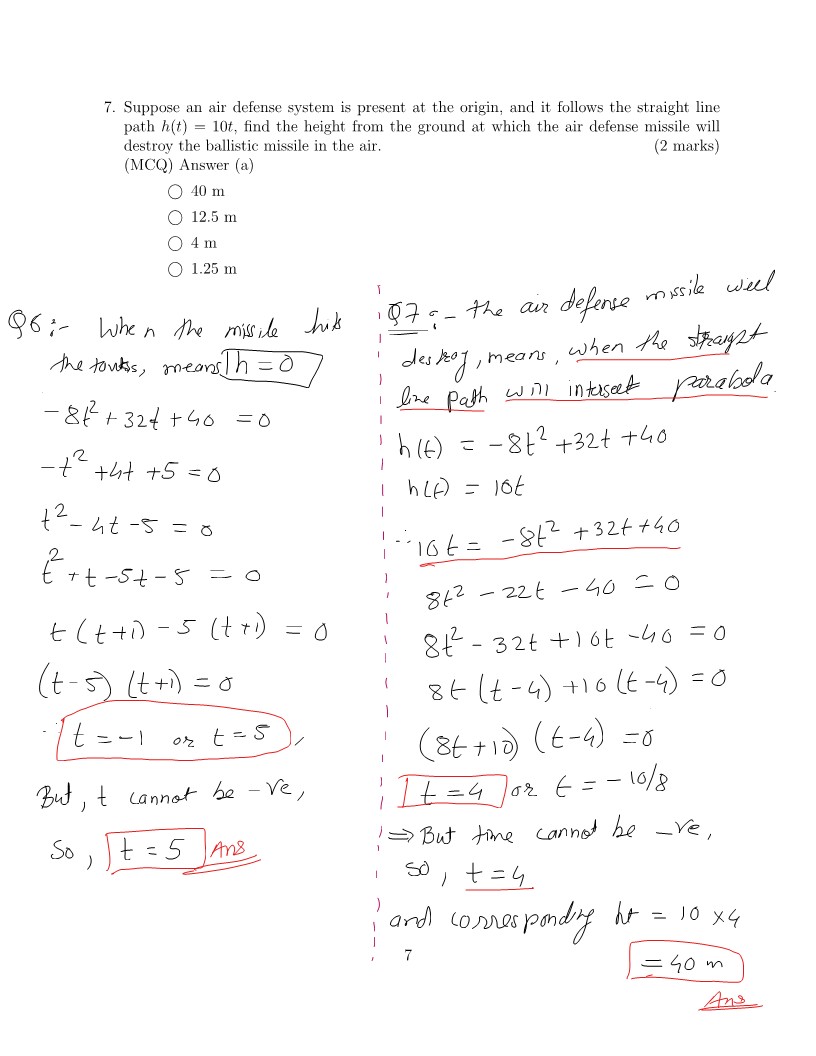 7. Suppose an air defense system is present at the origin, and it follows the straight line
path h(t) = 10t, find the height from the ground at which the air defense missile will
destroy the ballistic missile in the air. (2 marks)
(MCQ) Answer (a)
40 m
12.5 m
4 m
1.25 m
Q6 :- When the missile hits
the tanks, means h = 0
-8t² + 32t + 40 = 0
-t² + 4t + 5 = 0
t² - 4t - 5 = 0
t² + t - 5t - 5 = 0
t (t+1) - 5 (t+1) = 0
(t-5) (t+1) = 0
∴ t = -1 or t = 5,
But, t cannot be -ve,
So, t = 5 Ans
Q7 :- The air defense missile will
destroy, means, when the straight
line path will intersect parabola.
h(t) = -8t² + 32t + 40
h(t) = 10t
∴ 10t = -8t² + 32t + 40
8t² - 22t - 40 = 0
8t² - 32t + 10t - 40 = 0
8t (t-4) + 10 (t-4) = 0
(8t+10) (t-4) = 0
t = 4 or t = -10/8
⇒ But time cannot be -ve,
so, t = 4
and corresponding ht = 10 × 4
= 40 m
Ans
7